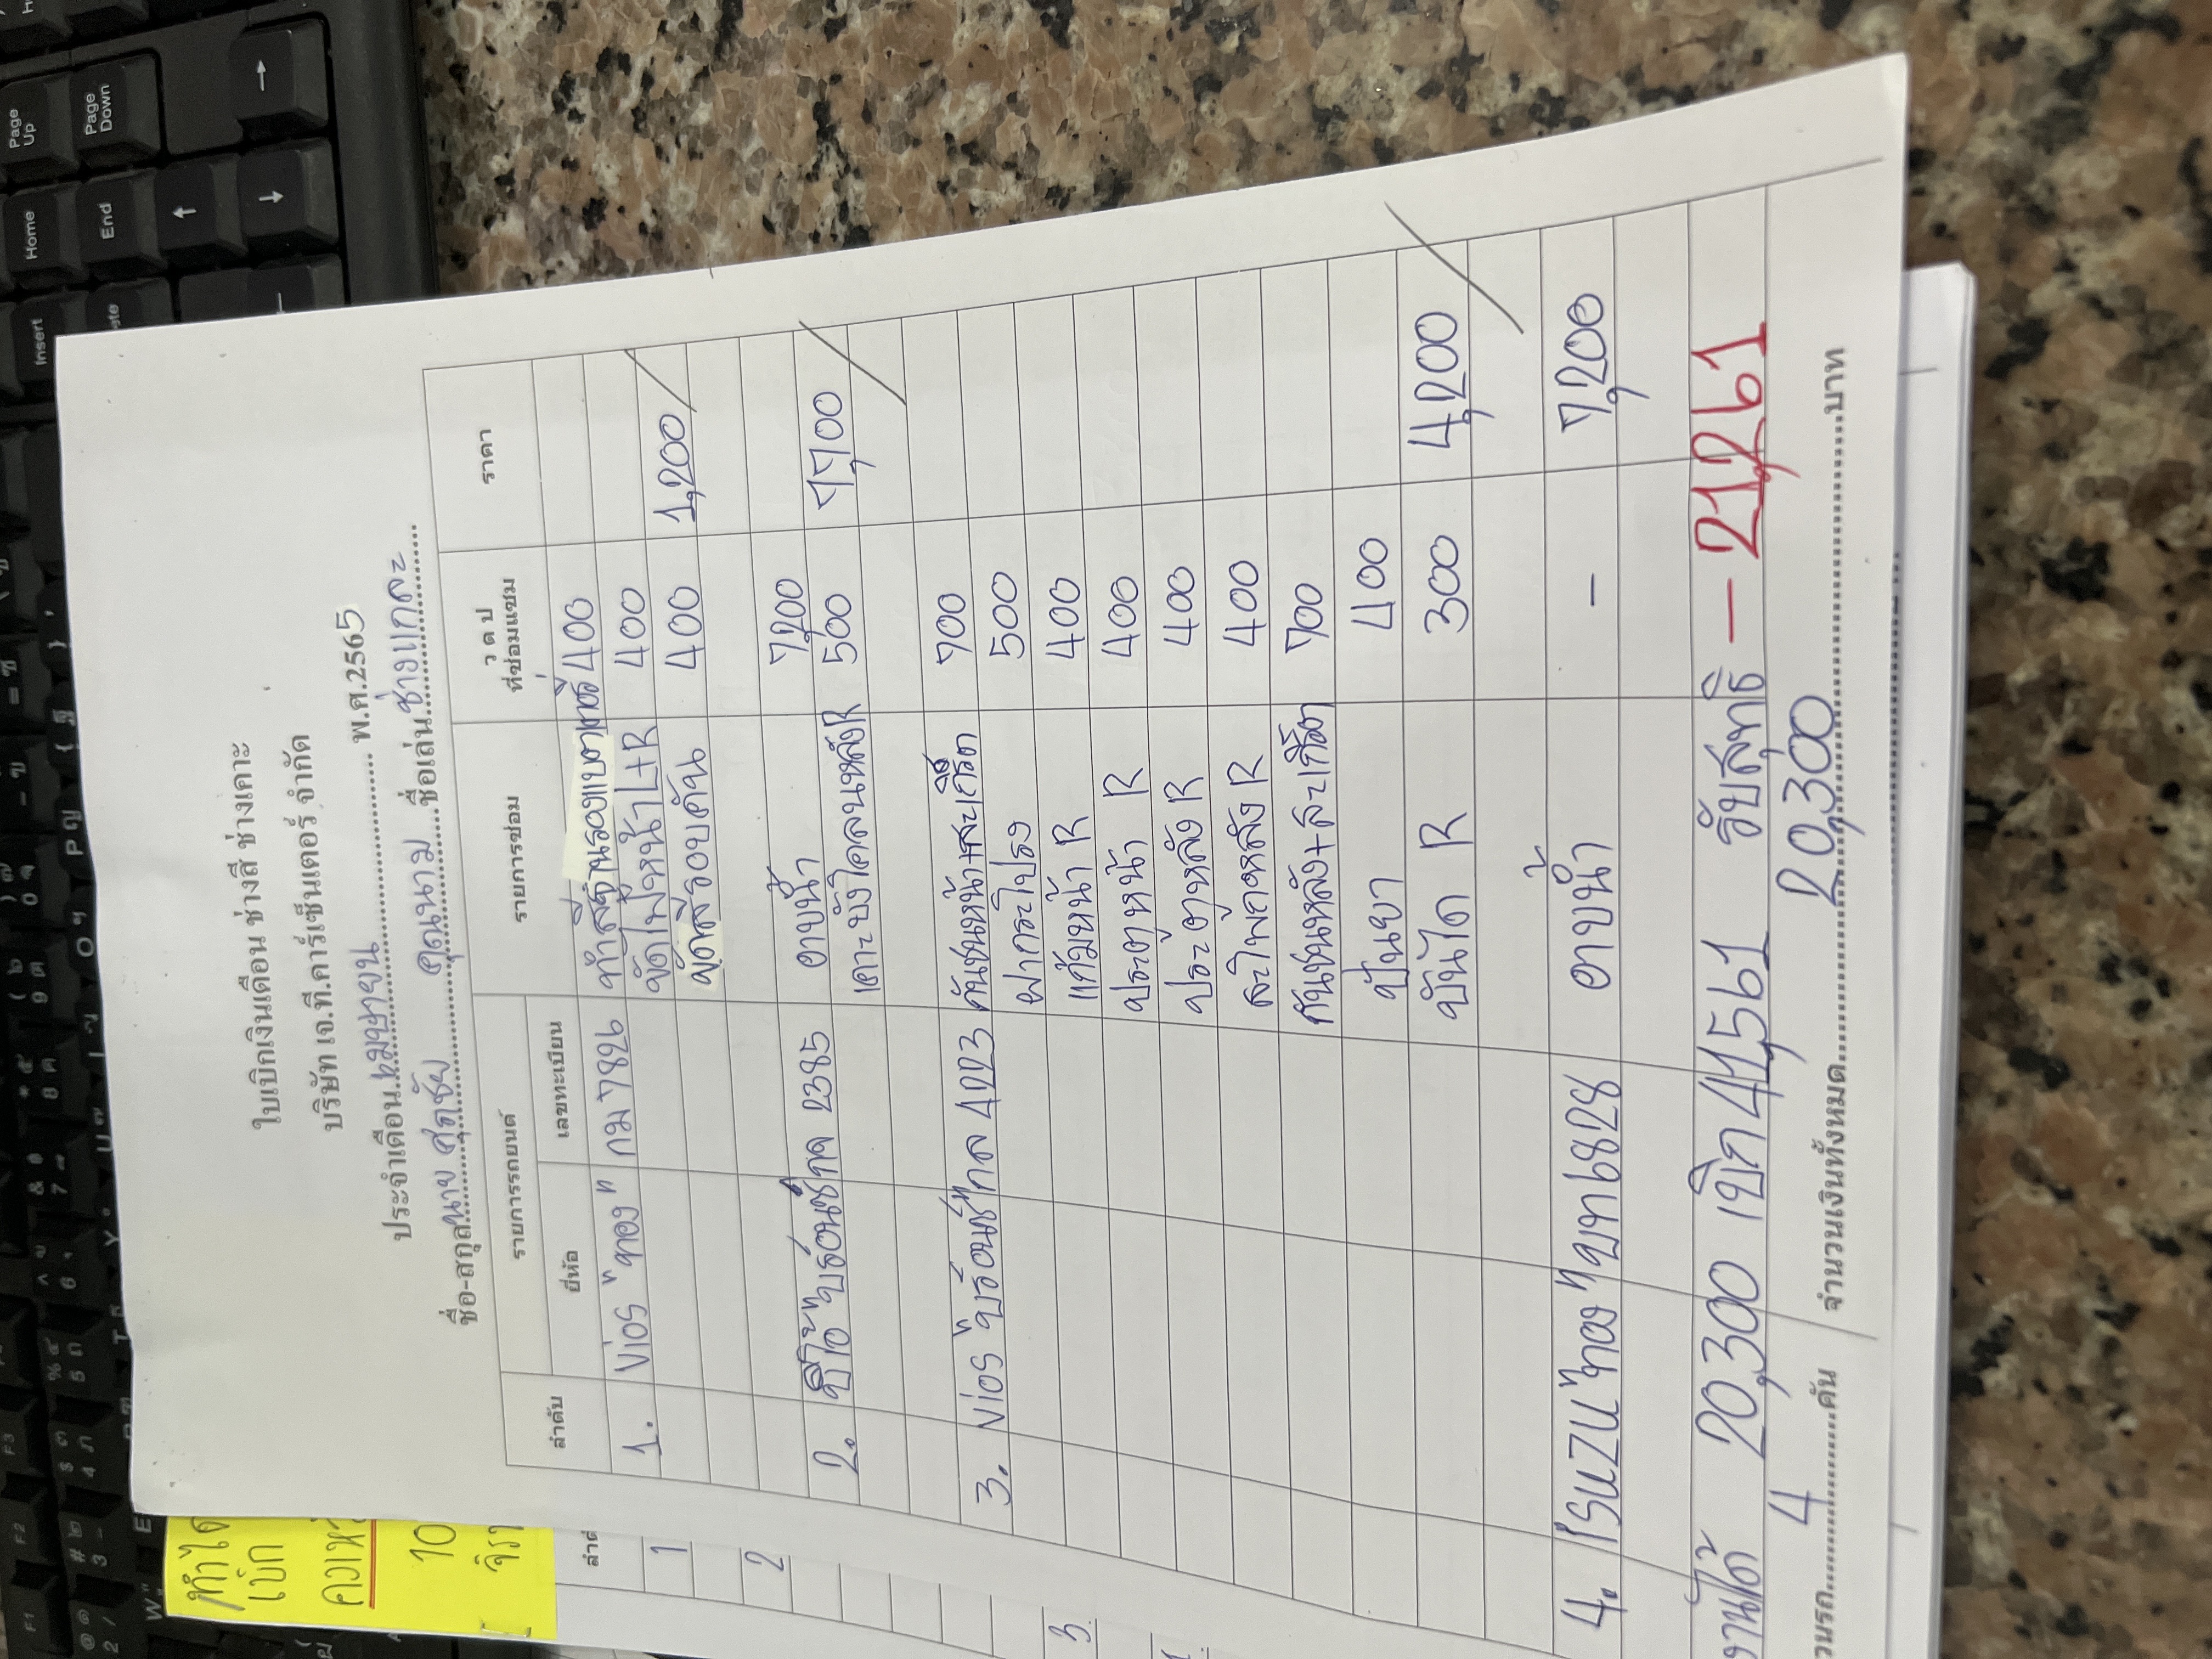 ใบเบิกเงินเดือน ช่างสี ช่างเคาะ
บริษัท เจ.ที.คาร์เซ็นเตอร์ จำกัด
ประจำเดือน เมษายน พ.ศ.2565
ชื่อ-สกุล นาย ศุภชัย คุณนาม ชื่อเล่น ช่างแกละ
ลำดับ รายการรถยนต์ รายการซ่อม ว ด ป ที่ซ่อมแซม ราคา
ยี่ห้อ เลขทะเบียน
1. Vios "ทอง" กม 7826 ทำสีฐานรองแบตเตอรี่ 400
ขัดไฟหน้า L+R 400
ขัดสีรอบคัน 400 1,200
2. วีโก้ "บรอนซ์" กจ 2385 อาบน้ำ 7,200
เคาะบังโคลนหลัง R 500 7,700
3. Vios "บรอนซ์" กล 4223 กันชนหน้า+สะเกิ๊ต 700
ฝากระโปรง 500
แก้มหน้า R 400
ประตูหน้า R 400
ประตูหลัง R 400
สะโพกหลัง R 400
กันชนหลัง+สะเกิ๊ต 700
ปั้นยา 400
บันได R 300 4,200
4. ISUZU "ทอง" บท 6828 อาบน้ำ - 7,200
งานได้ 20,300 เบิก 41,561 รับสุทธิ - 21,261
4 คัน จำนวนเงินทั้งหมด 20,300 บาท
ทำได
เบิก
คงเห
10
จิรา
ลำดั
1
2
3
Page Up
Page Down
Home
End
Insert